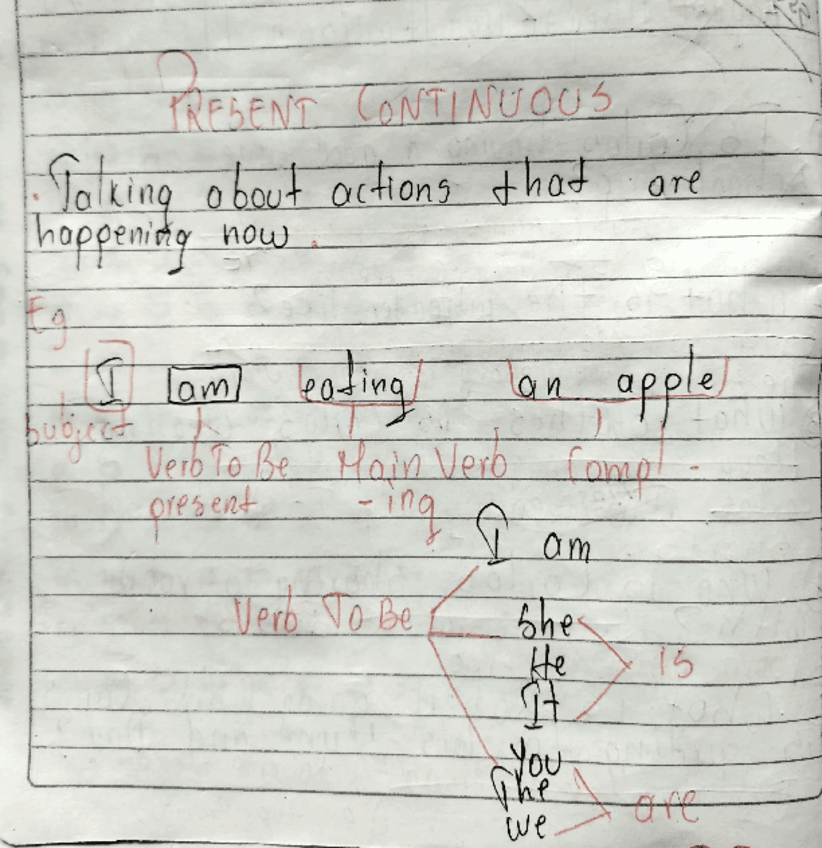 PRESENT CONTINUOUS
. Talking about actions that are
happening now.
Eg
I am eating an apple
Subject
Verb To Be Main Verb Compl -
present -ing
I am
Verb To Be She
He is
It
You
The
we are